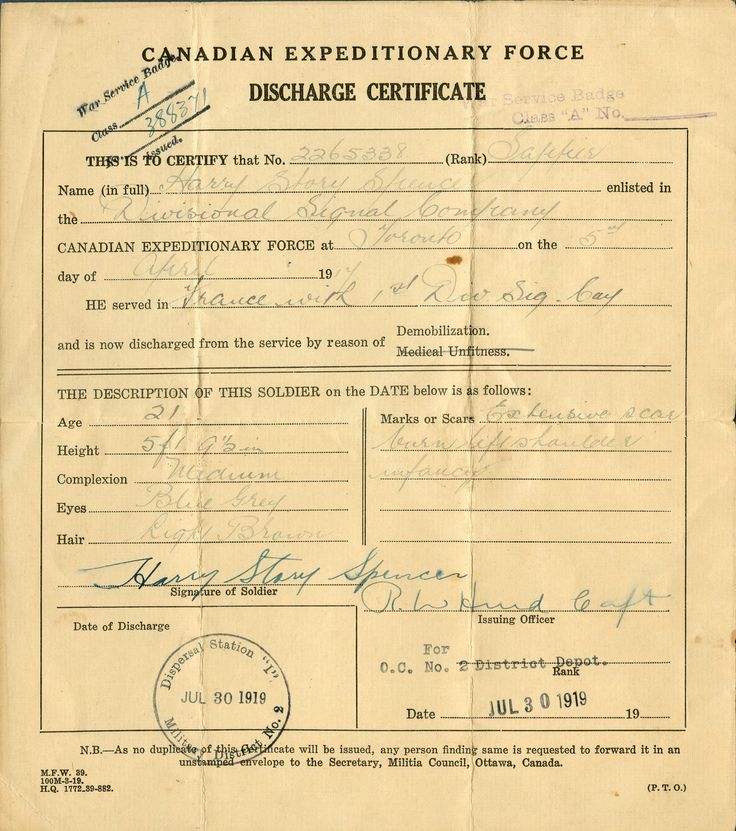 CANADIAN EXPEDITIONARY FORCE
DISCHARGE CERTIFICATE
War Service Badge
Class A
388371
issued.
War Service Badge
Class "A" No.
THIS IS TO CERTIFY that No. 2265338 (Rank) Sapper
Name (in full) Harry Story Spence enlisted in
the Divisional Signal Company
CANADIAN EXPEDITIONARY FORCE at Toronto on the 5th
day of April 1917
HE served in France with 1st Div Sig. Coy
and is now discharged from the service by reason of Demobilization.
Medical Unfitness.
THE DESCRIPTION OF THIS SOLDIER on the DATE below is as follows:
Age 21
Height 5ft 9½in
Complexion Medium
Eyes Blue Grey
Hair Light Brown
Marks or Scars Extensive scar
burn left shoulder
infancy
Harry Story Spencer
Signature of Soldier
R. W Capt
Issuing Officer
For
O.C. No. 2 District Depot.
Rank
Date JUL 30 1919 19
Date of Discharge
Dispersal Station "I"
JUL 30 1919
Military District No. 2
N.B.—As no duplicate of this Certificate will be issued, any person finding same is requested to forward it in an
unstamped envelope to the Secretary, Militia Council, Ottawa, Canada.
M.F.W. 39.
100M-3-19.
H.Q. 1772-39-882.
(P. T. O.)